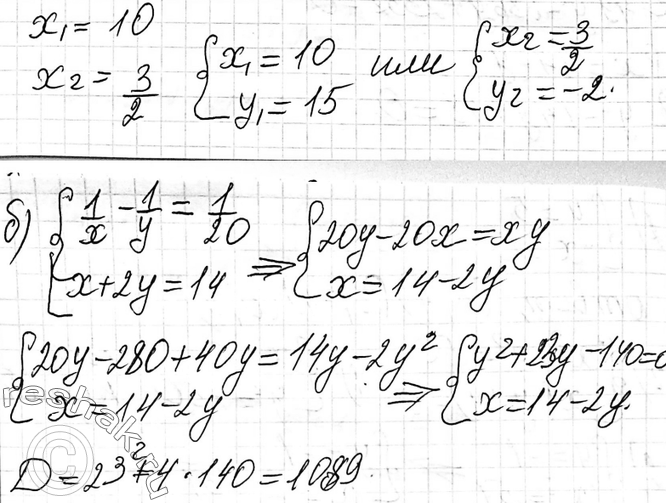 x₁ = 10
x₂ = 3/2 { x₁ = 10 y₁ = 15 или { x₂ = 3/2 y₂ = -2.
б) { 1/x - 1/y = 1/20 x + 2y = 14 ⇒ { 20y - 20x = xy x = 14 - 2y
{ 20y - 280 + 40y = 14y - 2y² x = 14 - 2y ⇒ { y² + 23y - 140 = 0 x = 14 - 2y.
D = 23² + 4 · 140 = 1089
reshak.ru